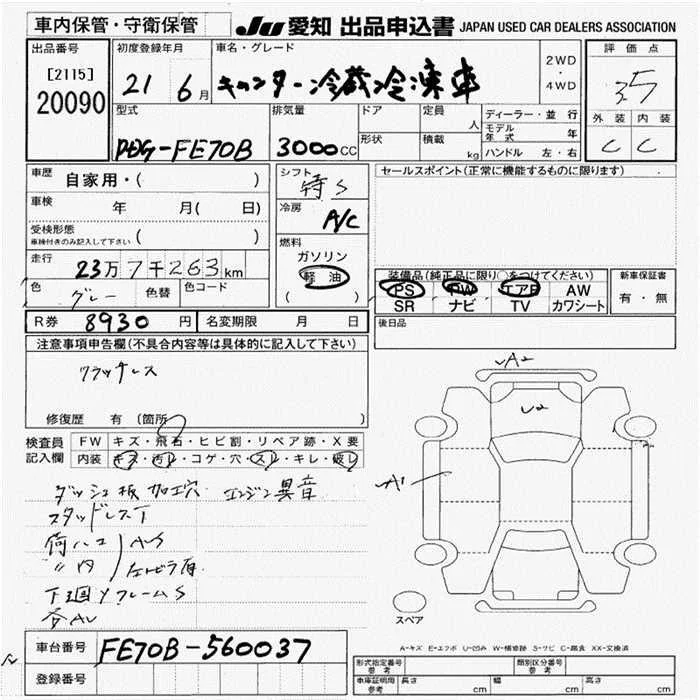 車内保管・守衛保管
JU 愛知 出品申込書 JAPAN USED CAR DEALERS ASSOCIATION
出品番号 [2115] 20090
初度登録年月 21 6月
車名・グレード キャンター冷蔵冷凍車
2WD・4WD
評価点 3.5
外装 内装
C C
型式 PDG-FE70B
排気量 3000CC
ドア 定員 人
形状 積載 kg
ディーラー・並行
モデル年式 年
ハンドル 左・右
車歴 自家用・( )
車検 年 月( 日)
受検形態 車検付きのみ記入して下さい ( )
走行 23万7千263km
色 グレー 色替 色コード
シフト 特S
冷房 A/C
燃料 ガソリン
軽油
( )
セールスポイント(正常に機能するものに限ります)
装備品(純正品に限り○をつけてください)
PS PW エアB AW
SR ナビ TV カワシート
新車保証書
有・無
R券 8930円 名変期限 月 日
後日品
注意事項申告欄(不具合内容等は具体的に記入して下さい)
クラッチレス
修復歴 有 (箇所 )
検査員記入欄
FW キズ・飛石・ヒビ割・リペア跡・X要
内装 キズ・汚レ・コゲ・穴・スレ・キレ・破レ
ダッシュ板加工穴 エンジン異音
スタッドレスT
荷ハコ
〃内
下廻りフレームS
各AU
A2
U2
A1
スペア
A-キズ E-エクボ U-凹み W-補修跡 S-サビ C-腐食 XX-交換済
車台番号 FE70B-560037
登録番号
形式指定番号 参考
類別区分番号 参考
車庫証明用 参考 長さ cm 幅 cm 高さ cm